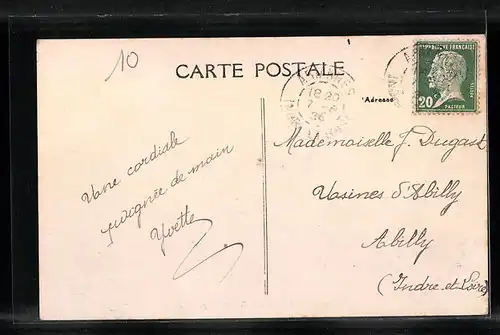 10
CARTE POSTALE
RÉPUBLIQUE FRANÇAISE
20c
POSTES
PASTEUR
18 20
7
26
Adresse
Mademoiselle J. Dugast
Usines d'Abilly
Abilly
(Indre-et-Loire)
Une cordiale
poignée de main
Yvette